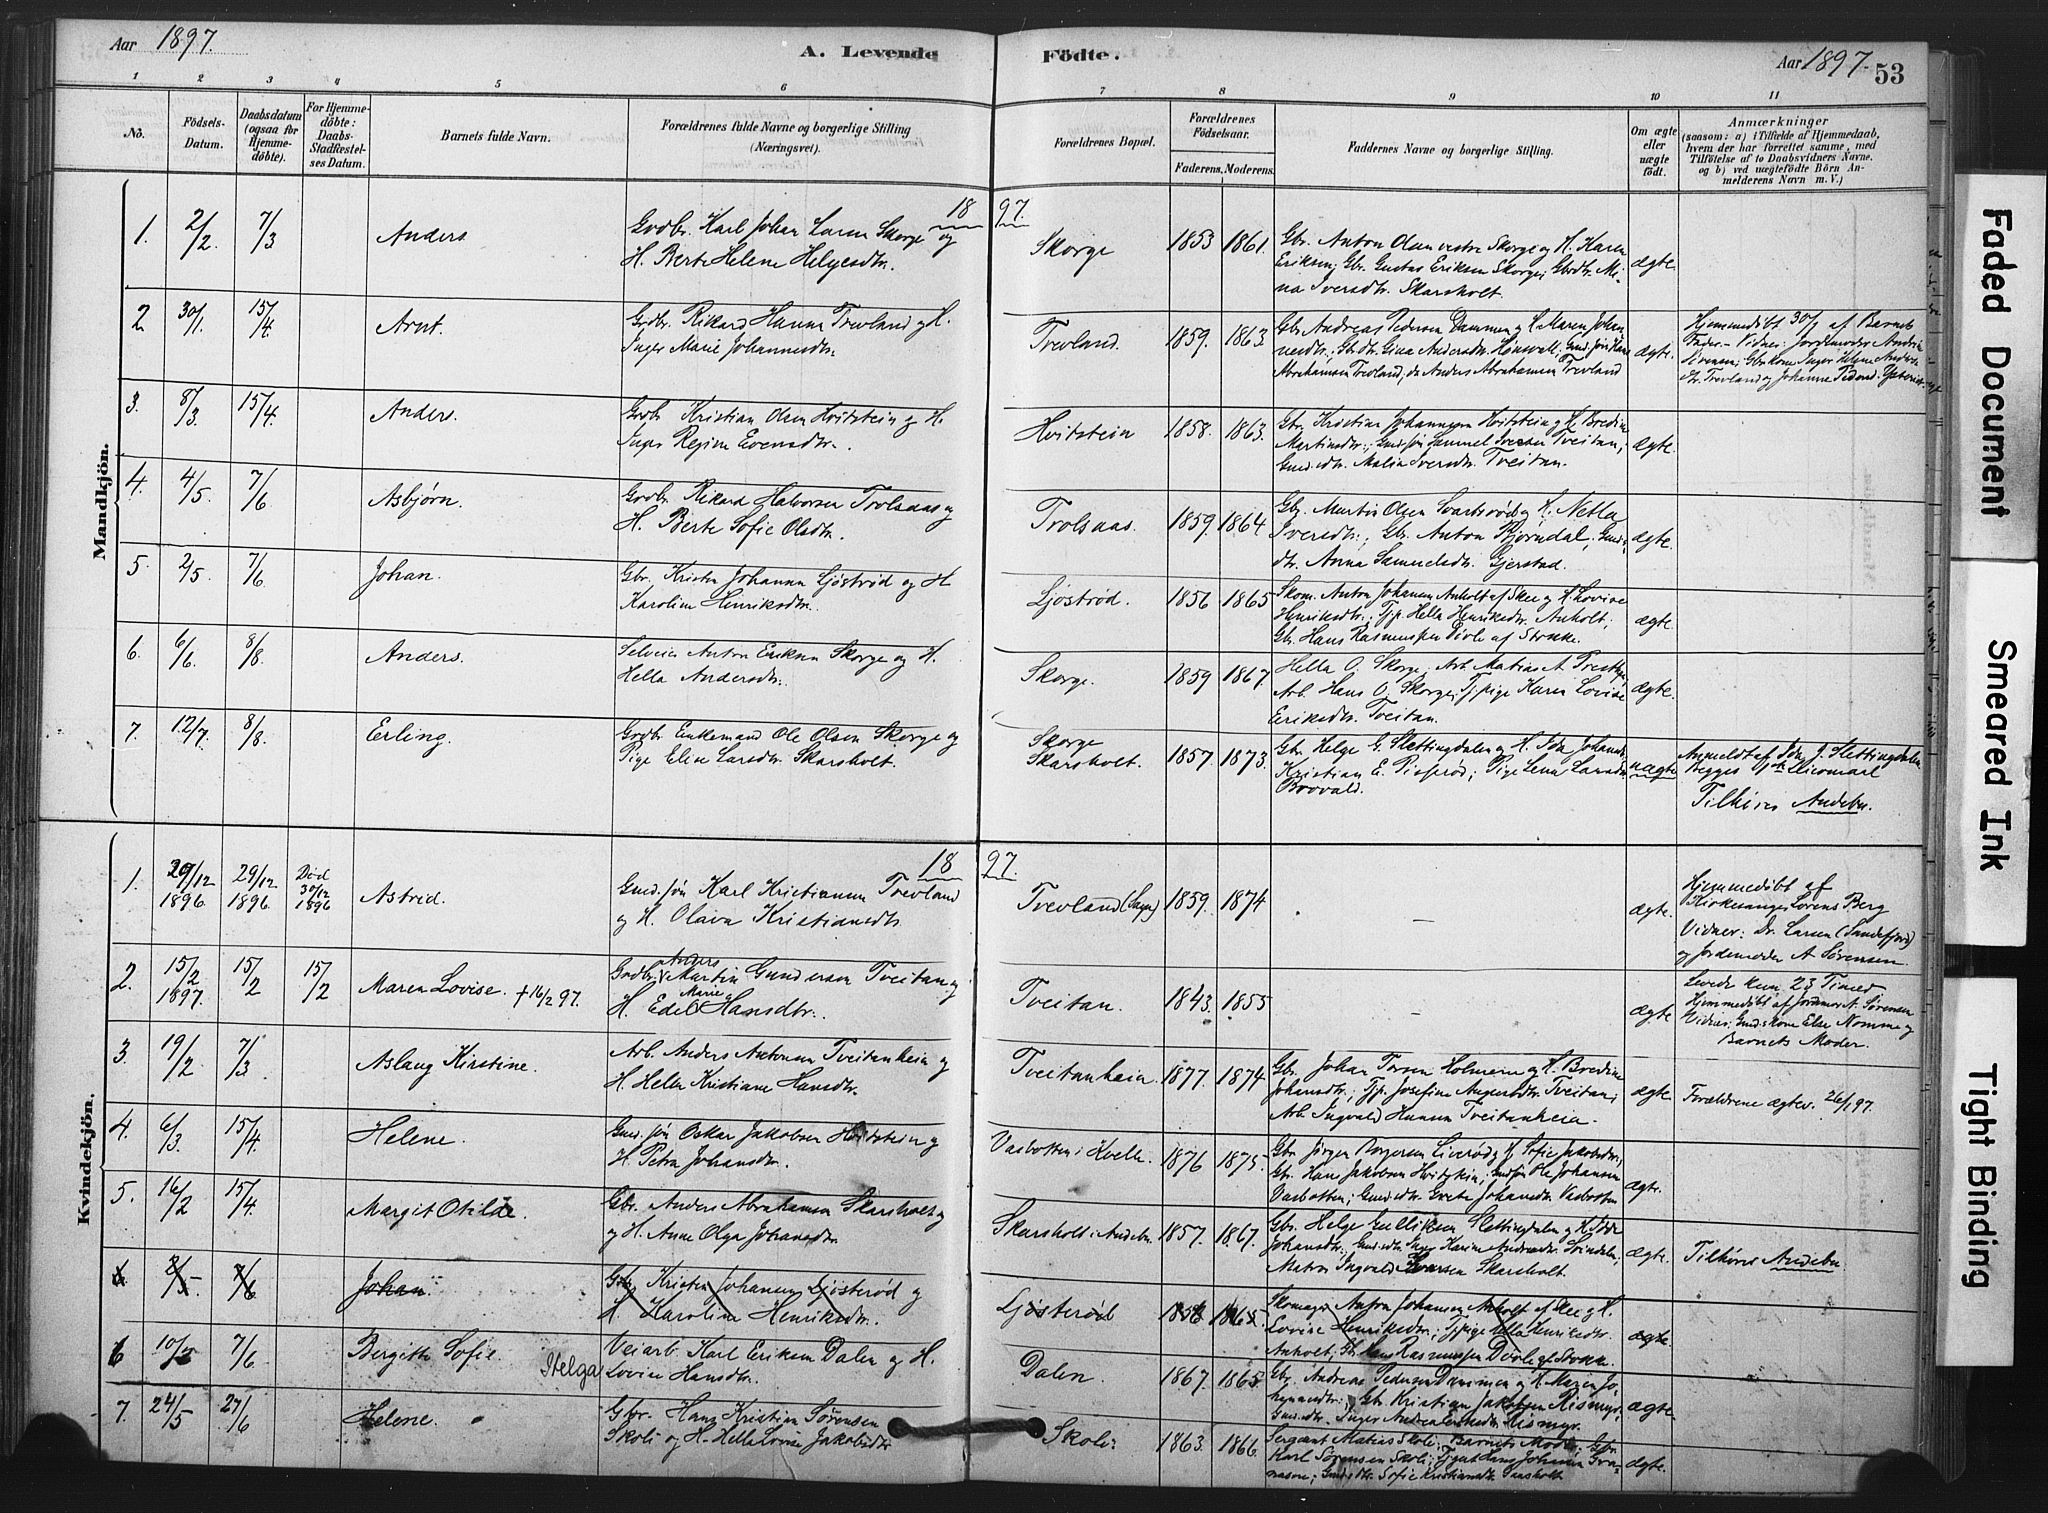 Aar 1897.
A. Levende Födte.
Aar 1897. 53
1 2 3 4 5 6 7 8 9 10 11
No.
Födsels-
Datum.
Daabsdatum
(ogsaa for
Hjemme-
döbte).
For Hjemme-
döbte:
Daabs-
Stadfæstel-
ses Datum.
Barnets fulde Navn.
Forældrenes fulde Navne og borgerlige Stilling
(Næringsvei).
Forældrenes Bopæl.
Forældrenes
Födselsaar.
Faderens. Moderens.
Faddernes Navne og borgerlige Stilling.
Om ægte
eller
uægte
födt.
Anmærkninger
(saasom: a) i Tilfælde af Hjemmedaab,
hvem der har forrettet samme, med
Tilföielse af to Daabsvidners Navne.
og b) ved uægtefödte Börn An-
melderens Navn m. V.)
Mandkjön.
18 97.
1. 2/2. 7/3 Anders
Gbdbr. Karl Johan Larsen Skorge og
H. Berte Helene Helgesdtr.
Skorge 1853 1861.
Gbr. Anton Olsen vestre Skorge og H. Karen
Eriksen; Gbr. Gustav Eriksen Skorge; Gbrdtr. Mi-
na Iversdtr. Skarsholt.
ægte.
2. 30/1. 15/4. Arnt.
Gbdbr. Rikard Hansen Trevland og H.
Inger Marie Johannesdtr.
Trevland. 1859. 1863.
Gbr. Andreas Pedersen Dammen og H. Maren Johan
nesdtr.; Gbrdtr. Gina Andersdtr. Hynevall; Gmd. søn Hans
Abrahamsen Trevland; do Anders Abrahamsen Trevland
ægte.
Hjemmedöbt 30/1 af Barnets
Fader. - Vidner: Jordmoder Andrea
Sörensen; Gbrkone Inger Helene Anders
dtr. Trevland og Johanne
3. 8/3 15/4. Anders.
Gbdbr. Kristian Olsen Hvitstein og H.
Inger Regine Evensdtr.
Hvitstein 1858. 1863.
Gbr. Kristian Johannesen Hvitstein og H. Bredine
Martinsdtr.; Gmd. søn Samuel Iversen Tveitan;
Gmd. dtr. Malia Iversdtr. Tveitan.
ægte.
4. 4/5. 7/6 Asbjørn.
Gbdbr. Rikard Halvorsen Trolsaas og
H. Berte Sofie Olsdtr.
Trolsaas. 1859. 1864
Gbr. Martin Olsen Svartsrød og H. Netla
Iversdtr.; Gbr. Anton Bjørndal; Gmd.
dtr. Anna Samuelsdtr. Gjerstad.
ægte.
5. 2/5. 7/6 Johan.
Gbr. Kristen Johansen Ljøstrød og H
Karoline Henriksdtr.
Ljøstrød. 1856 1865
Skom. Anton Johansen Anholt af Skee og H. Lovise
Henriksdtr.; Tjp. Hella Henriksdtr. Anholt;
Gbr. Hans Rasmussen Dvøle af Stokke.
ægte.
6. 6/6. 8/8. Anders.
Selveier Anton Eriksen Skorge og H.
Hella Andersdtr.
Skorge. 1859 1867.
Hella O. Skorge; Arb. Matias A. Prestby;
Arb. Hans O. Skorge; Tjpige Karen Lovise
Eriksdtr. Tveitan.
ægte.
7. 12/7. 8/8. Erling.
Gbdbr. Enkemand Ole Olsen Skorge og
Pige Elise Larsdtr. Skarsholt.
Skorge
Skarsholt. 1857. 1873.
Gbr. Helge G. Slettingdalen og H. Ida Johansdtr.
Kristian E. Pisserød; Pige Lena Larsdtr.
uægte
Anmeldt af Ida J. Slettingdalen
Tilhører Andebu.
Kvindekjön.
18 97.
1. 29/12 1896. 29/12 1896. Död 30/12 1896 Astrid.
Gmd. søn Karl Kristiansen Trevland
og H. Olava Kristiansdtr.
Trevland (Sagen) 1859. 1874
ægte.
Hjemmedöbt af
Kirkesanger Lorens Berg
Vidner: Dr. Larsen (Sandefjord)
og Jordemoder A. Sörensen.
2. 15/2 1897. 15/2 15/2 Maren Lovise. +16/2 97.
Gbdbr. Anders Martin Gundersen Tveitan og
H. Edel Marie Hansdtr.
Tveitan 1843. 1855
ægte
Levede kun 23 Timer
Hjemmedöbt af Jordmor A. Sørensen
Vidner: Gmd. skone Else Nomme og
Barnets Moder.
3. 19/2 7/3. Aslaug Kirstine.
Arb. Anders Antonsen Tveitanheia og
H. Hella Kristiane Hansdtr.
Tveitanheia. 1877. 1874
Gbr. Johan Torsen Holmene og H. Bredine
Johansdtr.; Tjp. Josefine Augustdtr. Tveitan;
Arb. Ingvald Hansen Tveitanheia.
ægte.
Forældrene ægtev. 26/1 97.
4. 6/3. 15/4. Helene.
Gmd. søn Oskar Jakobsen Hvitstein og
H. Petra Johansdtr.
Vasbotten i Kvelle. 1876 1875.
Gbr. Jørgen Borgersen Liverød og H. Sofie Jakobsdtr.;
Gbr. Hans Jakobsen Hvitstein; Gmd. søn Ole Johansen
Vasbotten; Gmd. dtr. Grete Johansdtr. Vasbotten
ægte.
5. 16/2 15/4. Margit Otilde.
Gbr. Anders Abrahamsen Skarsholt og
og H. Anne Olga Johansdtr.
Skarsholt i Andebu. 1857. 1867.
Gbr. Helge Gulliksen Slettingdalen og H. Ida
Johansdtr.; Gmd. dtr. Inger Karine Andersdtr. Söndalen;
Matros Ingvald Iversen Skarsholt.
ægte.
Tilhører Andebu
6. 2/5. 7/6 Johan
Gbr. Kristen Johansen Ljösterød og
H. Karoline Henriksdtr.
Ljösterød 1856 1865.
Skomager Anton Johansen Anholt af Skee og H.
Lovise Henriksdtr.; Tjpige Hella Henriksdtr.
Anholt; Gbr. Hans Rasmussen Dvöle af Stokke.
ægte.
6 10/5 7/6 Bergitte Sofie. Helga
Veiarb. Karl Eriksen Dalen og H.
Lovise Hansdtr.
Dalen. 1867. 1865.
Gbr. Andreas Pedersen Dammen og H. Maren Jo-
hannesdtr.; Gbr. Kristian Jakobsen Rismyr;
Gmd. dtr. Inger Andrea Rismyr.
ægte.
7. 24/5 27/6 Helene.
Gbr. Hans Kristian Sørensen
Skoli og H. Hella Lovise Jakobsdtr
Skoli 1863. 1866.
Sergeant Matias Skoli; Barnets Moder; Gbr.
Karl Sørensen Skoli; Tjgut Hans Johansen Gra-
nasen; Gmd. dtr. Sofie Kristiansdtr. Taasholt
ægte.
Faded Document
Smeared Ink
Tight Binding